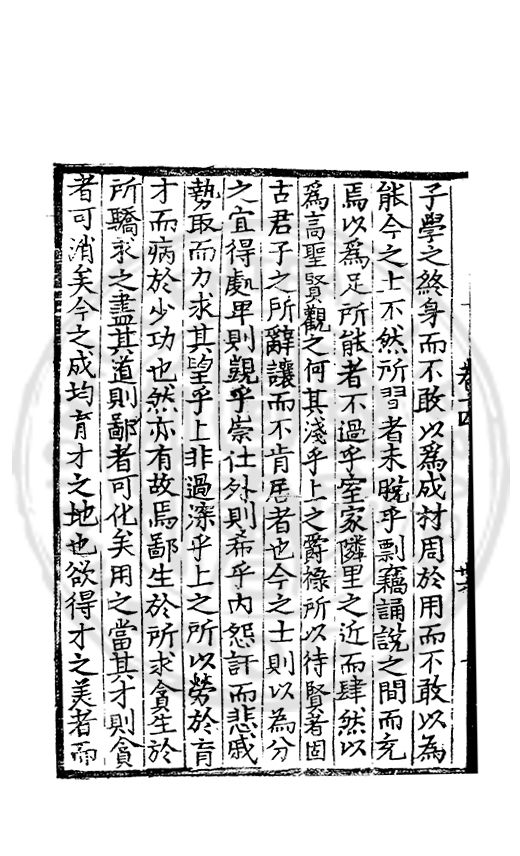 子學之終身而不敢以爲成材周於用而不敢以為
能今之士不然所習者未脫乎剽竊誦說之間而充
焉以爲足所能者不過乎室家隣里之近而肆然以
爲高聖賢觀之何其淺乎上之爵祿所以待賢者固
古君子之所辭讓而不肯居者也今之士則以為分
之宜得處卑則覬乎崇仕外則希乎内怨訐而悲戚
勢取而力求其望乎上非過深乎上之所以勞於育
才而病於少功也然亦有故焉鄙生於所求貪生於
所驕求之盡其道則鄙者可化矣用之當其才則貪
者可消矣今之成均育才之地也欲得才之美者而
卷十四